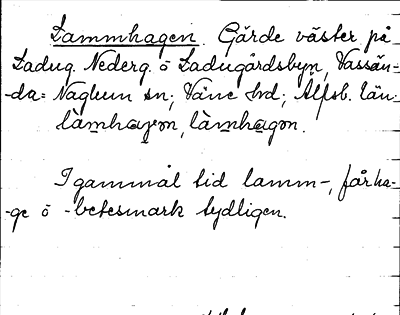 Lammhagen. Gärde väster på
Ladug. Nederg. ö Ladugårdsbyn, Vassän-
-da= Naglum sn; Väne hd; Älfsb. län.
làmhagen, làmhagon.
I gammal tid lamm-, fårha-
-ge ö -betesmark tydligen.